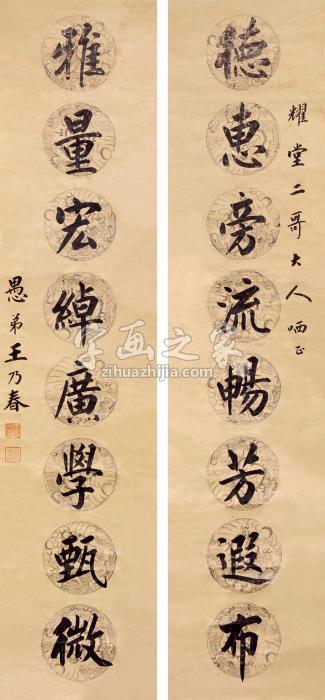 耀堂二哥大人哂正
德惠旁流暢芳遐布
雅量宏綽廣學甄微
愚弟王乃春
字画之家
www.zihuazhijia.com